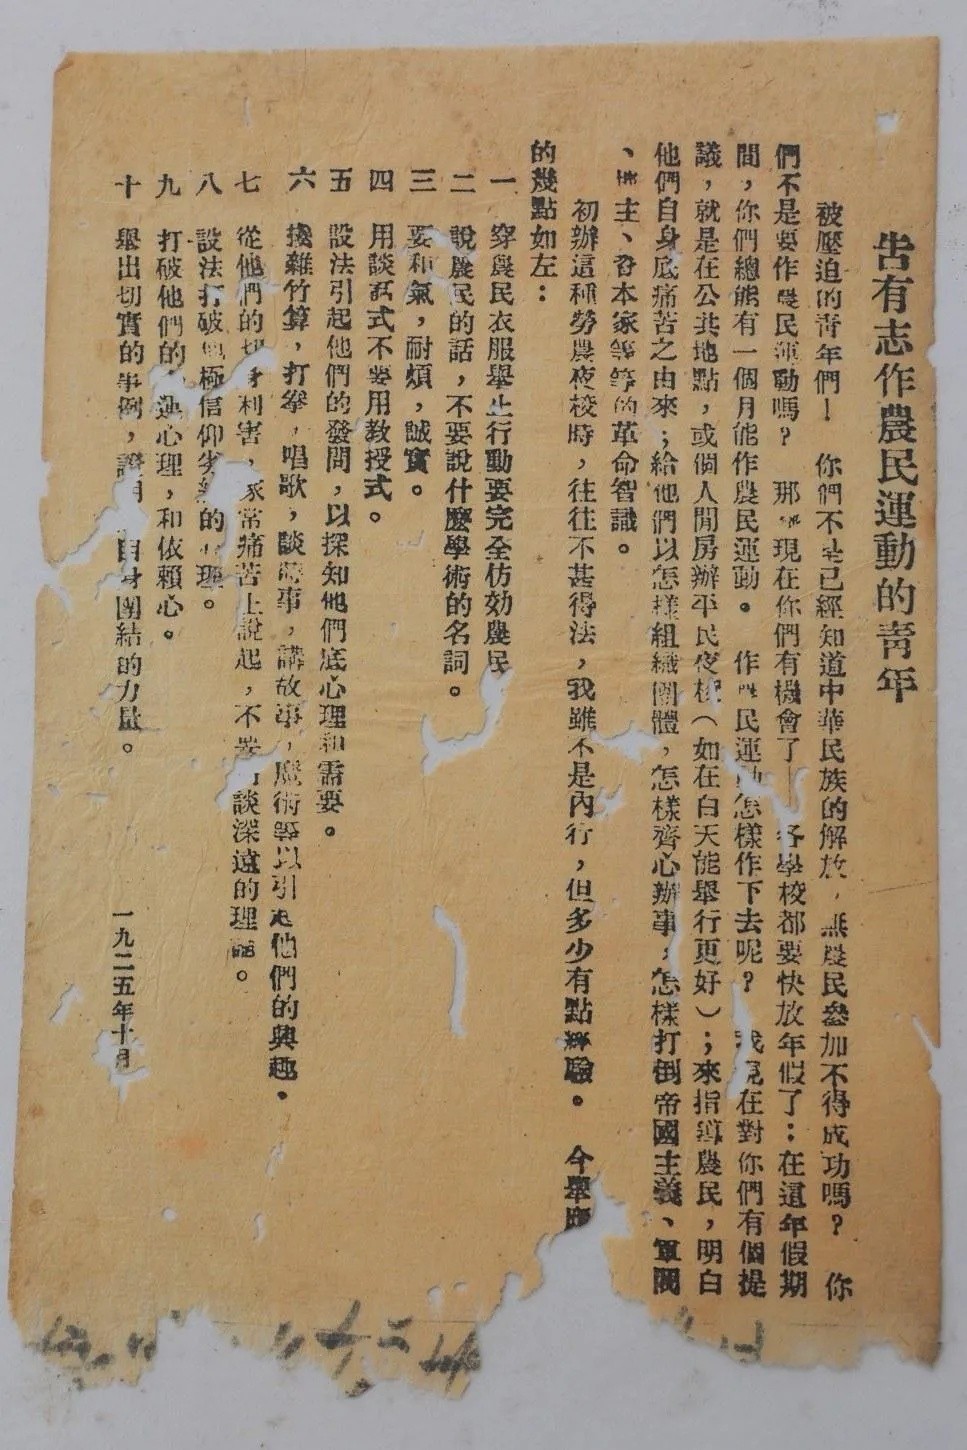 告有志作農民運動的青年
被壓迫的青年們！　你們不是已經知道中華民族的解放，無農民參加不得成功嗎？　你
們不是要作農民運動嗎？　那　現在你們有機會了——各學校都要快放年假了：在這年假期
間，你們總能有一個月能作農民運動。　作農民運動怎樣作下去呢？　我現在對你們有個提
議，就是在公共地點，或個人閒房辦平民夜校（如在白天能舉行更好）；來指導農民，明白
他們自身底痛苦之由來；給他們以怎樣組織團體，怎樣齊心辦事，怎樣打倒帝國主義、軍閥
、地主、資本家等等的革命智識。
初辦這種勞農夜校時，往往不甚得法，我雖不是內行，但多少有點經驗。　今舉應
的幾點如左：
一　穿農民衣服舉止行動要完全仿効農民
二　說農民的話，不要說什麼學術的名詞。
三　要和氣，耐煩，誠實。
四　用談話式不要用教授式。
五　設法引起他們的發問，以探知他們底心理和需要。
六　擽雜竹算，打拳，唱歌，談時事，講故事，魔術等以引起他們的興趣。
七　從他們的切身利害，家常痛苦上說起，不要　談深遠的理論。
八　設法打破　極信仰劣紳的心理。
九　打破他們的　運心理，和依賴心。
十　舉出切實的事例，證明　自身團結的力量。
一九二五年十月